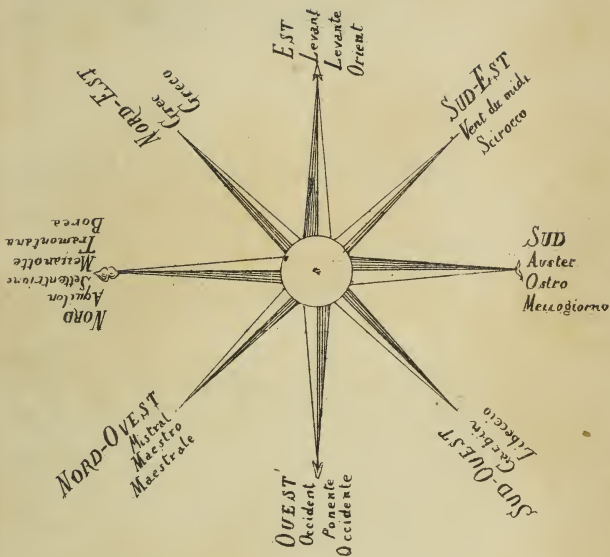 EST
Levant
Levante
Orient
SUD-EST
Vent du midi
Scirocco
SUD
Auster
Ostro
Mezzogiorno
SUD-OUEST
Garbin
Libeccio
OUEST
Occident
Ponente
Occidente
NORD-OUEST
Mistral
Maestro
Maestrale
NORD
Aquilon
Settentrione
Mezzanotte
Tramontana
Borea
NORD-EST
Grec
Greco